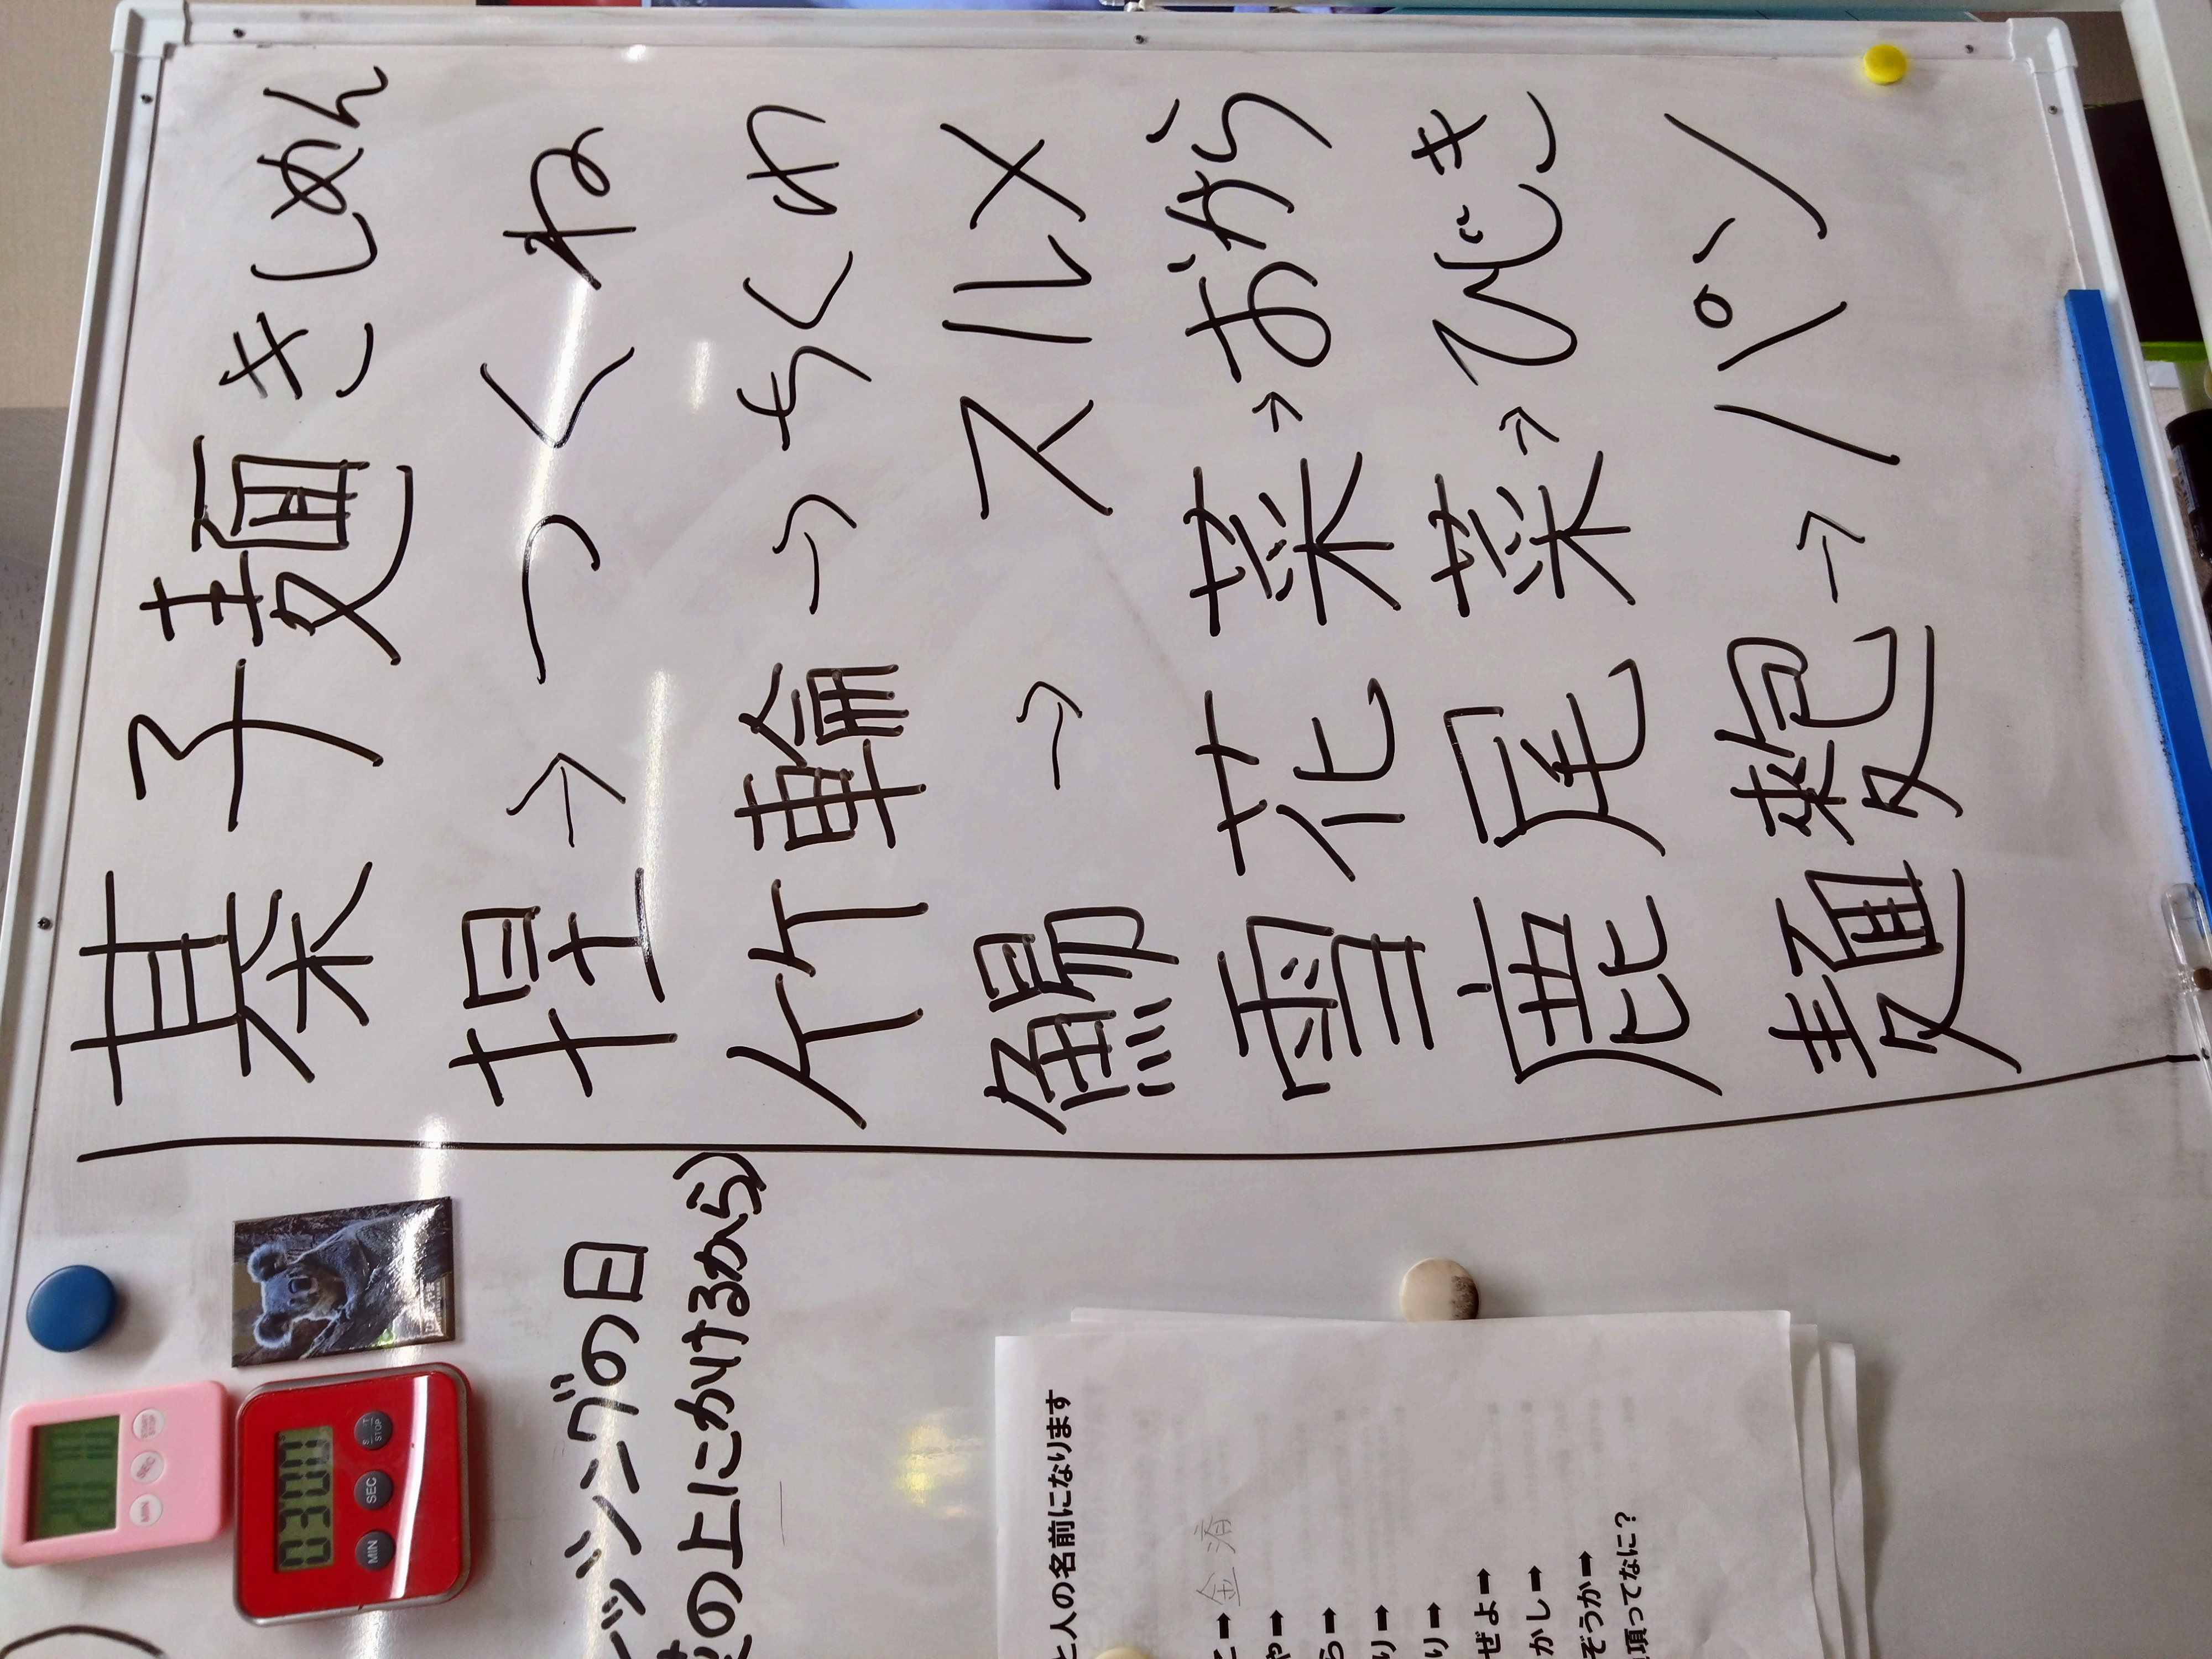 20 10
MIN SEC START STOP
03:00
MIN SEC STOP
ひがしやま
Higashiyama
レッシングの日
菜の上にかけるから)
と人の名前になります
こ➡金済
や➡
ら➡
り➡
り➡
ぜよ➡
かし➡
ぞうか➡
項ってなに?
棊子麺 きしめん
捏→つくね
竹輪→ちくわ
鯣→スルメ
雪花菜→おから
鹿尾菜→ひじき
麺麭→パン